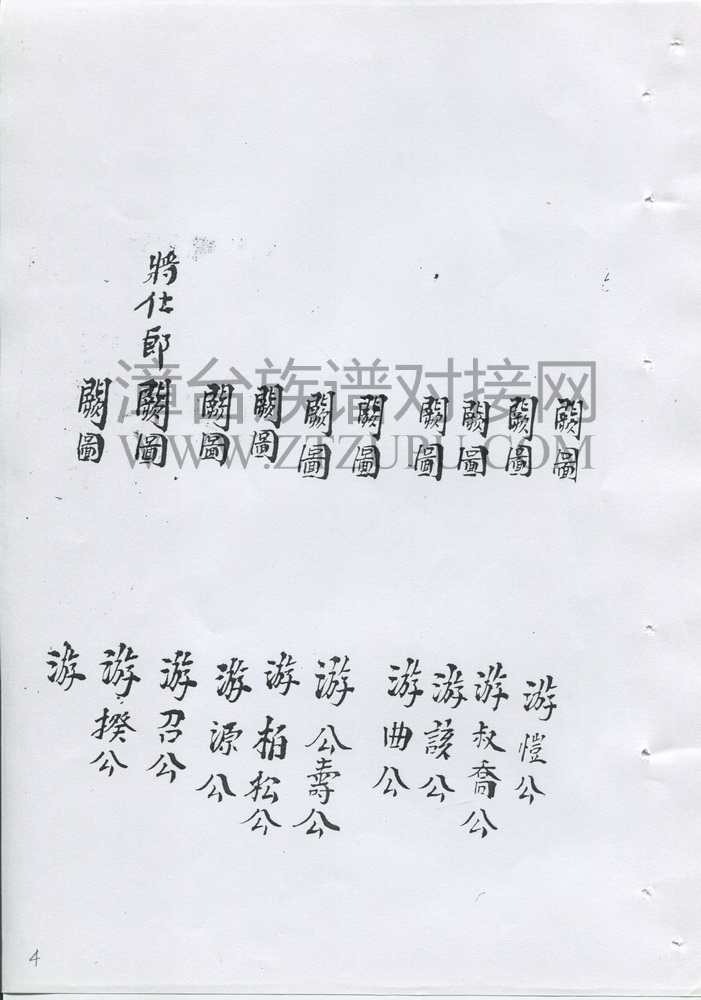 闕圖
闕圖
闕圖
闕圖
闕圖
闕圖
闕圖
闕圖
將仕郎闕圖
闕圖
游愷公
游叔喬公
游該公
游曲公
游公壽公
游柏松公
游源公
游召公
游揆公
游
漳台族谱对接网
WWW.ZTZUPU.COM
4